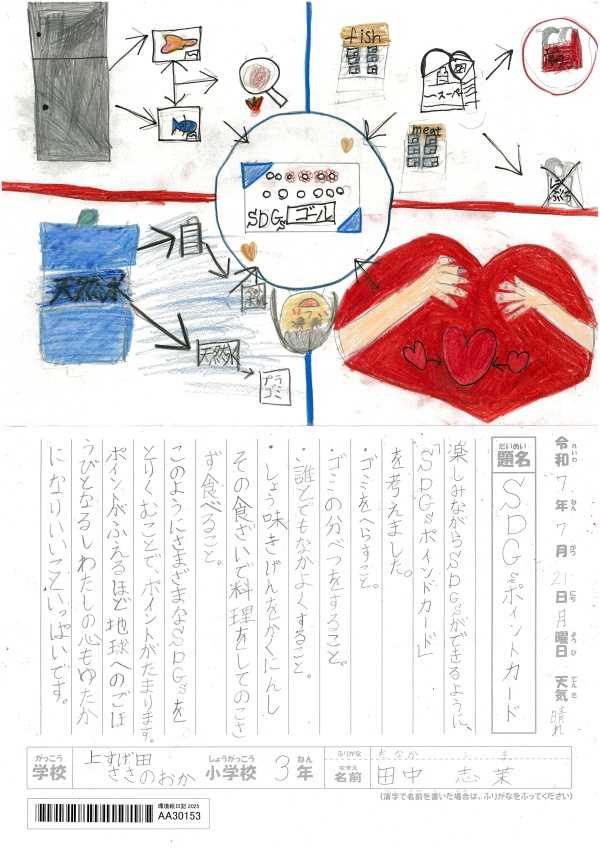 fish
スーパー
meat
SDGs ゴール
天然水
天然水
プラ
ゴミ
令和7年7月21日月曜日 天気 晴れ
れいわ ねん がつ にち ようび てんき
だいめい
題名
SDGsポイントカード
楽しみながらSDGsができるように、
「SDGsポイントカード」
を考えました。
・ゴミをへらすこと。
・ゴミの分べつをすること。
・誰とでもなかよくすること。
・しょう味きげんをかくにんし
その食ざいで料理をしてのこさ
ず食べること。
このようにさまざまなSDGsを
とりくむことで、ポイントがたまります。
ポイントがふえるほど地球へのごほ
うびとなるしわたしの心もゆたか
になりいいこといっぱいです。
がっこう
学校
上田
すげささのおか
しょうがっこう
小学校
3年
ねん
ふりがな
たなか しま
なまえ
名前
田中 志茉
(漢字で名前を書いた場合は、ふりがなをふってください)
環境絵日記 2025
AA30153